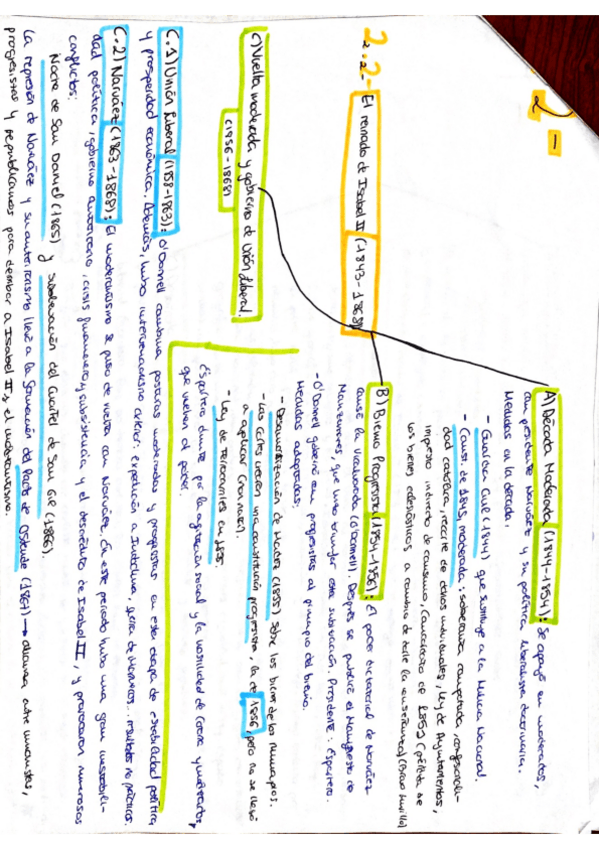 2-
2.2.- El reinado de Isabel II (1843-1868)
A) Década Moderada (1844-1854): Se apoyó en moderados,
con presidente Narváez y su política liberalista doctrinaria.
Medidas en la década:
- Guardia Civil (1844) que sustituye a la Milicia Nacional.
- Const. de 1845, moderada: soberanía compartida, confesionali-
dad católica, recorte de dchos individuales, Ley de Ayuntamientos,
impuesto indirecto de consumo, Concordato de 1851 (pérdida de
los bienes eclesiásticos a cambio de darle la enseñanza)
B) Bienio Progresista (1854-1856): El poder dictatorial de Narváez
causó la Vicalvarada (O'Donnell). Después se publicó el Manifiesto de
Manzanares, que hizo triunfar esta sublevación. Presidente: Espartero.
- O'Donnell gobernó con progresistas al principio del bienio.
Medidas adoptadas:
- Desamortización de Madoz (1855) sobre los bienes de los municipios.
- Las Cortes votaron una constitución progresista, la de 1856, pero no se llevó
a aplicar
- Ley de Ferrocarriles en 1855.
Espartero dimite por la agitación social y la hostilidad de Corona y moderados,
que vuelven al poder.
C) Vuelta moderada y gobierno de Unión Liberal.
(1856-1868)
C.1) Unión Liberal (1858-1863): O'Donnell combina posturas moderadas y progresistas en esta etapa de estabilidad política
y prosperidad económica. Además, hubo intervencionismo exterior: expedición a Indochina, guerra de Marruecos... resultados no prácticos.
C.2) Narváez (1863-1868): El moderantismo se puso de vuelta con Narváez. En este periodo hubo una gran inestabili-
dad política, gobierno autoritario, crisis financiera y subsistencia y el descrédito de Isabel II, y provocaron numerosos
conflictos:
Noche de San Daniel (1865) y sublevación del Cuartel de San Gil (1866).
La represión de Narváez y su autoritarismo llevó a la formación del Pacto de Ostende (1867) → alianza entre unionistas,
progresistas y republicanos para derribar a Isabel II y el moderantismo.